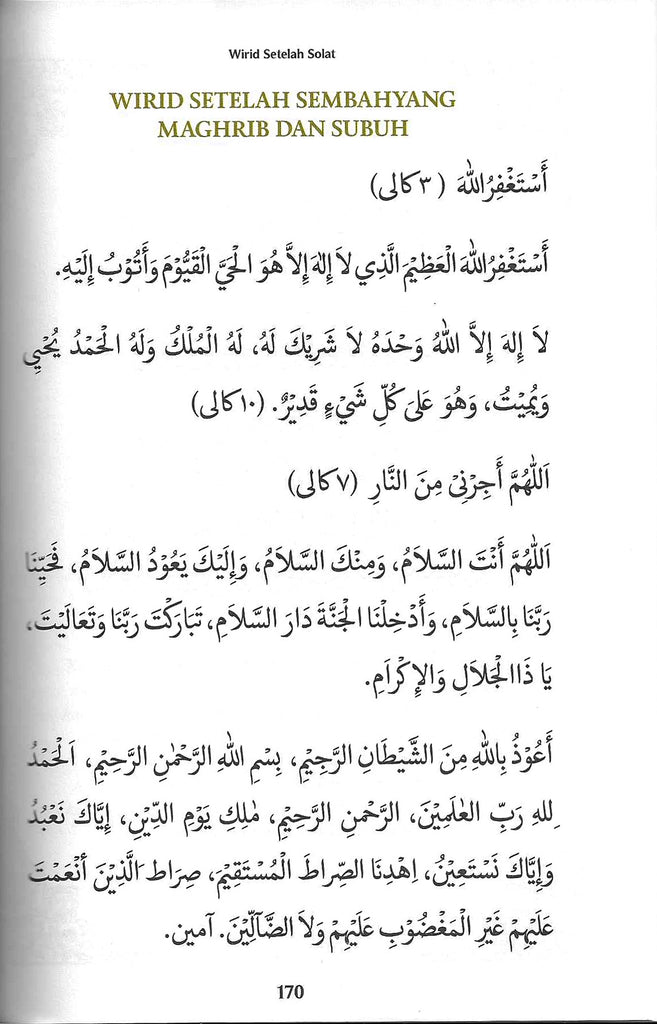 Wirid Setelah Solat
WIRID SETELAH SEMBAHYANG
MAGHRIB DAN SUBUH
أَسْتَغْفِرُاللهَ (٣ كالى)
أَسْتَغْفِرُاللهَ الْعَظِيْمَ الَّذِي لاَ إِلٰهَ إِلاَّ هُوَ الْحَيَّ الْقَيُّوْمَ وَأَتُوْبُ إِلَيْهِ.
لاَ إِلهَ إِلاَّ اللهُ وَحْدَهُ لاَ شَرِيْكَ لَهُ، لَهُ الْمُلْكُ وَلَهُ الْحَمْدُ يُحْيِي
وَيُمِيْتُ، وَهُوَ عَلىَ كُلِّ شَيْءٍ قَدِيْرٌ. (١٠ كالى)
اَللّٰهُمَّ أَجِرْنِيْ مِنَ النَّارِ (٧ كالى)
اَللّٰهُمَّ أَنْتَ السَّلاَمُ، وَمِنْكَ السَّلاَمُ، وَإِلَيْكَ يَعُوْدُ السَّلاَمُ، فَحَيِّنَا
رَبَّنَا بِالسَّلاَمِ، وَأَدْخِلْنَا الْجَنَّةَ دَارَ السَّلاَمِ، تَبَارَكْتَ رَبَّنَا وَتَعَالَيْتَ،
يَا ذَاالْجَلاَلِ وَالإِكْرَامِ.
أَعُوْذُ بِاللهِ مِنَ الشَّيْطَانِ الرَّجِيْمِ، بِسْمِ اللهِ الرَّحْمٰنِ الرَّحِيْمِ، اَلْحَمْدُ
لِلهِ رَبِّ العٰلَمِيْنَ، الرَّحْمنِ الرَّحِيْمِ، مٰلِكِ يَوْمِ الدِّيْنِ، إِيَّاكَ نَعْبُدُ
وَإِيَّاكَ نَسْتَعِيْنُ، اِهْدِنَا الصِّرَاطَ الْمُسْتَقِيْمَ، صِرَاطَ الَّذِيْنَ أَنْعَمْتَ
عَلَيْهِمْ غَيْرِ الْمَغْضُوْبِ عَلَيْهِمْ وَلاَ الضَّآلِّيْنَ. آمين.
170